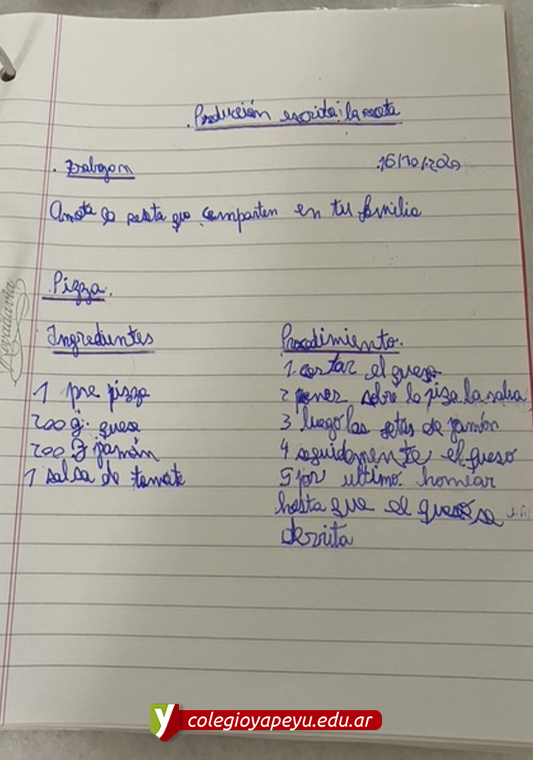 Producción escrita: la receta
. Trabajam
16/10/2020
Anota la receta que comparten en tu familia
Pizza.
Ingredientes
1 pre pizza
200 g. queso
200 g jamón
1 salsa de tomate
Procedimiento.
1 cortar el queso
2 poner sobre la piza la salsa
3 luego las fetas de jamón
4 seguidamente el queso
5 por ultimo hornear
hasta que el queso se
derrita
Rivadavia
colegioyapeyu.edu.ar